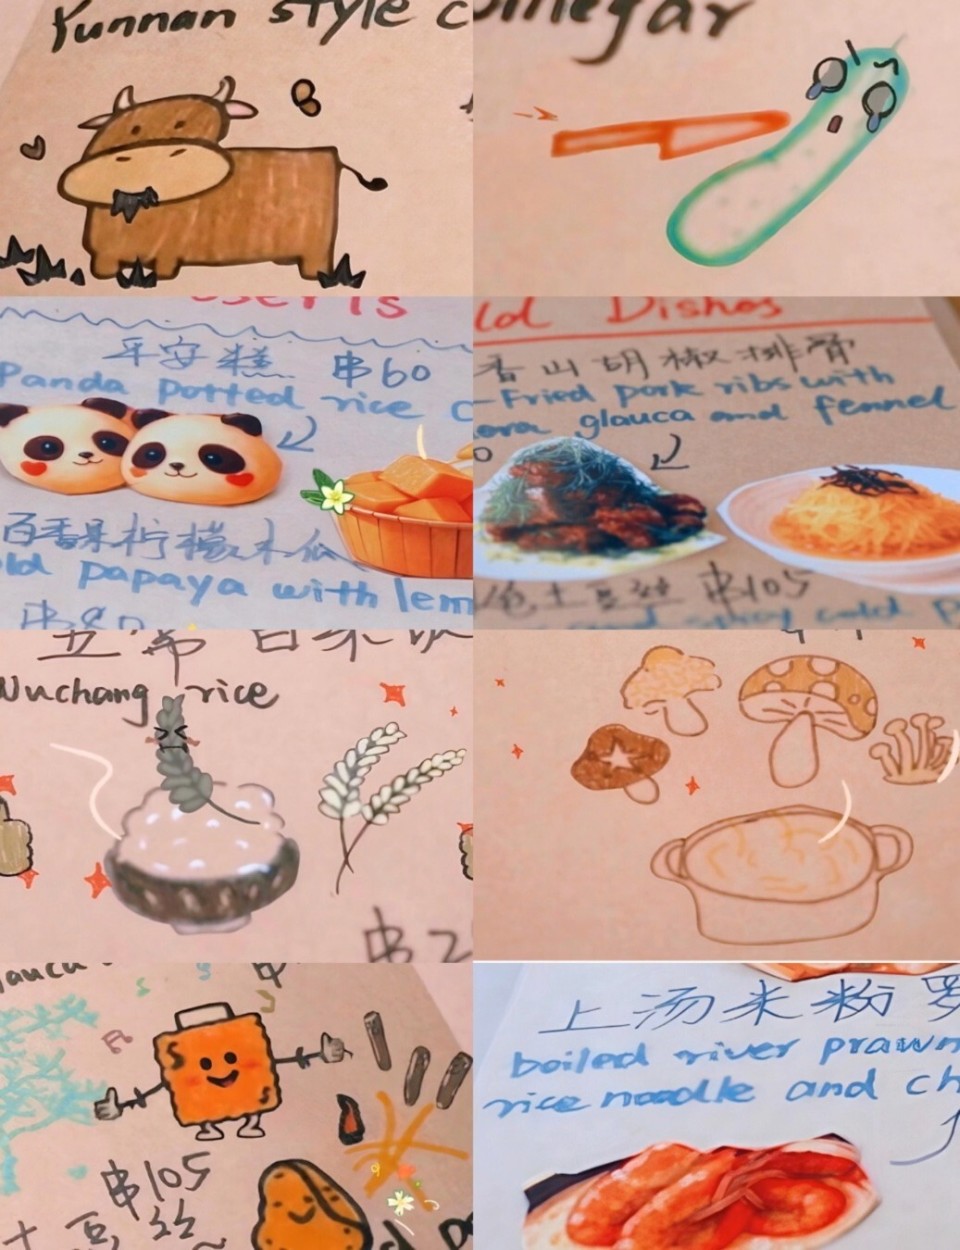 Yunnan style c
omegar
serts
平安糕 串60
Panda potted rice c
百香果柠檬木瓜
ld papaya with lem
串80
ld Dishes
香山胡椒排骨
Fried pork ribs with
ora glauca and fennel
0
色土豆丝 串105
and spicy cold p
五常白米饭
Wuchang rice
串2
glauca
串
串105
土豆丝
上汤米粉罗
boiled river prawn
rice noodle and ch